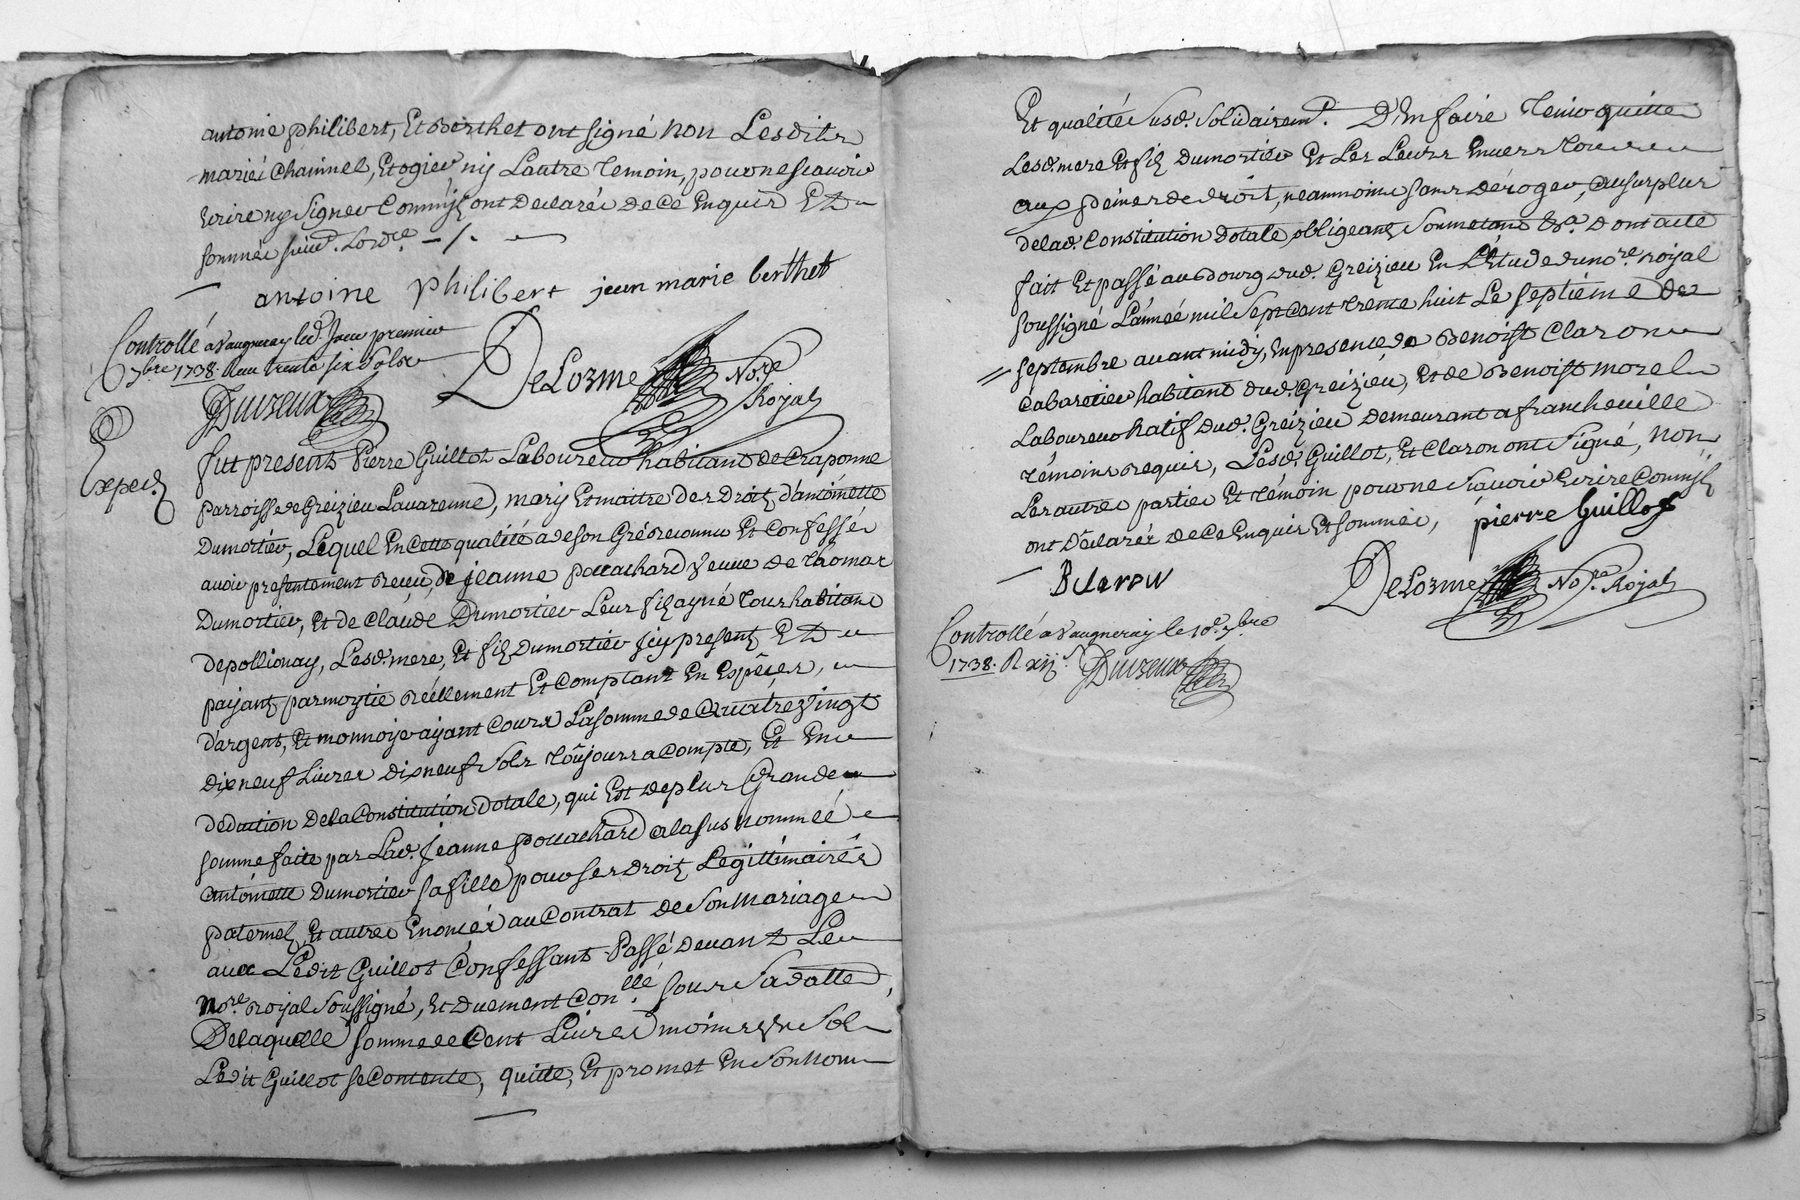 antoine philibert, Et Berthet ont signé non Lesdits
mariéz Chainnel, Et ogier ny Lautre temoin, pour ne scavoir
Ecrire ny signer Commys ont Declaréz de ce Enquis Et
sommés suivt. Lordce. -/. -
antoine philibert jean marie berthet
Controllé a Vaugneray led. Jour premier
7bre 1738. Reçu trente six sols
DeLorme Nore. Royal
Duvzeux
Exped.
fut present Pierre Guillot Laboureur habitant de Craponne
parroisse de Greizieu Lavarenne, mary Et maitre Des Droitz d'antoinette
Dumortier, Lequel En cette qualité a de son Gré reconnu Et Confessé
avoir presentement receu, de jeanne pouachard Veuve de Thomas
Dumortier, Et de Claude Dumortier Leur filz ayné tous habitans
de pollionay, Lesd. mere, Et filz Dumortier Icy presentz Et
payantz par moytié réellement Et Comptant En Espêces,
d'argent, Et monnoye ayant Cours La somme de Quatre Vingt
dixneuf Livres dixneuf Sols toujours a Compte, Et En
deduction De la Constitution Dotale, qui Est de plus Grande
somme faite par Lad. Jeanne pouachard a la sus nommée
antoinette Dumortier sa fille pour ses droitz Legittimairés
paternelz, Et autres Enoncéz au Contrat de Son Mariage
avec Ledit Guillot Confessant Passé devant Le
Nore. Royal Soussigné, Et Duement Conllé. sous Sa datte,
De laquelle somme de Cent Livres moins Un Sol
Ledit Guillot se Contente, quitte, Et promet En Son Nom
Et qualité Susd. Solidairemt. D'En faire Tenir quitte
Lesd. mere Et filz Dumortier Et Les Leurs Envers tous
aux peines de droit, neanmoins sans déroger, au surplus
de lad. Constitution dotale obligeant Soumetans &a. Dont acte
fait Et passé au Bourg dud. Greizieu En L'Etude du nore. royal
soussigné L'année mil Sept Cent trente huit Le septiéme de
septembre avant midy, En presence de Benoist Claron
Cabaretier habitant dud. Greizieu, Et de Benoist morel
Laboureur Natif dud. Greizieu demeurant a francheville
témoins requis, Lesd. Guillot, Et Claron ont Signé, Non
Les autres parties Et témoin pour ne Scavoir Ecrire Commys
ont Déclaréz de ce Enquis Et sommés, pierre Guillot
B Claron
DeLorme Nore. Royal
Controllé a Vaugneray le 10e. 7bre
1738. R xijs. Duvzeux